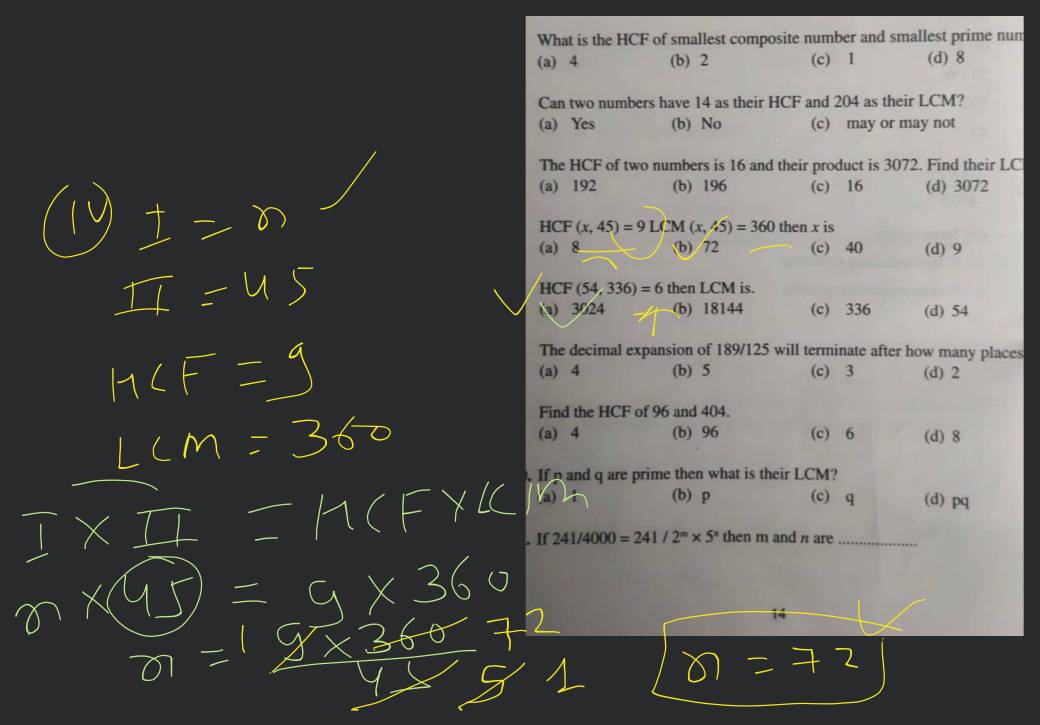 What is the HCF of smallest composite number and smallest prime num
(a) 4 (b) 2 (c) 1 (d) 8
Can two numbers have 14 as their HCF and 204 as their LCM?
(a) Yes (b) No (c) may or may not
The HCF of two numbers is 16 and their product is 3072. Find their LC
(a) 192 (b) 196 (c) 16 (d) 3072
HCF (x, 45) = 9 LCM (x, 45) = 360 then x is
(a) 8 (b) 72 (c) 40 (d) 9
HCF (54, 336) = 6 then LCM is.
(a) 3024 (b) 18144 (c) 336 (d) 54
The decimal expansion of 189/125 will terminate after how many places
(a) 4 (b) 5 (c) 3 (d) 2
Find the HCF of 96 and 404.
(a) 4 (b) 96 (c) 6 (d) 8
. If p and q are prime then what is their LCM?
(a) (b) p (c) q (d) pq
. If 241/4000 = 241 / 2ᵐ × 5ⁿ then m and n are ..................
14
IV I = x
II = 45
HCF = 9
LCM = 360
I × II = HCF × LCM
x × 45 = 9 × 360
x = 1 9 × 360 72
45 5 1
x = 72